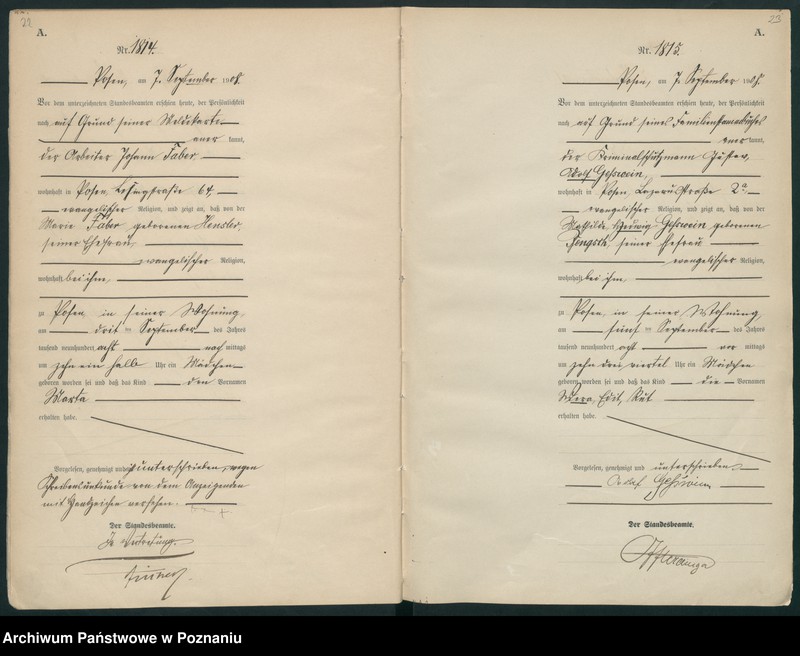 22
A.
Nr. 1814.
Posen, am 7. September 1908.
Vor dem unterzeichneten Standesbeamten erschien heute, der Persönlichkeit
nach auf Grund seiner Meldekarte
aner kannt,
der Arbeiter Johann Faber
wohnhaft in Posen, 64,
evangelischer Religion, und zeigt an, daß von der
Marie Faber geborenen Hensler,
seiner Ehefrau
evangelischer Religion,
wohnhaft bei ihm,
zu Posen in seiner Wohnung
am drit ten September des Jahres
tausend neunhundert acht nach mittags
um zehn ein halb Uhr ein Mädchen
geboren worden sei und daß das Kind den Vornamen
Marta
erhalten habe.
Vorgelesen, genehmigt und unterschrieben, wegen
Schreibensunkunde von dem Anzeigenden
mit Handzeichen versehen.
+++
Der Standesbeamte.
In Vertretung.
23
A.
Nr. 1815.
Posen, am 7. September 1908.
Vor dem unterzeichneten Standesbeamten erschien heute, der Persönlichkeit
nach auf Grund seines Familienstammbuches
aner kannt,
der Kriminalschutzmann Gustav,
Adolf
wohnhaft in Posen Lazarusstraße 2a,
evangelischer Religion, und zeigt an, daß von der
Mathilde, Hedwig geborenen
seiner Ehefrau
evangelischer Religion,
wohnhaft bei ihm,
zu Posen in seiner Wohnung
am fünf ten September des Jahres
tausend neunhundert acht vor mittags
um zehn drei viertel Uhr ein Mädchen
geboren worden sei und daß das Kind die Vornamen
Edit, Rut
erhalten habe.
Vorgelesen, genehmigt und unterschrieben.
Adolf
Der Standesbeamte.
Archiwum Państwowe w Poznaniu